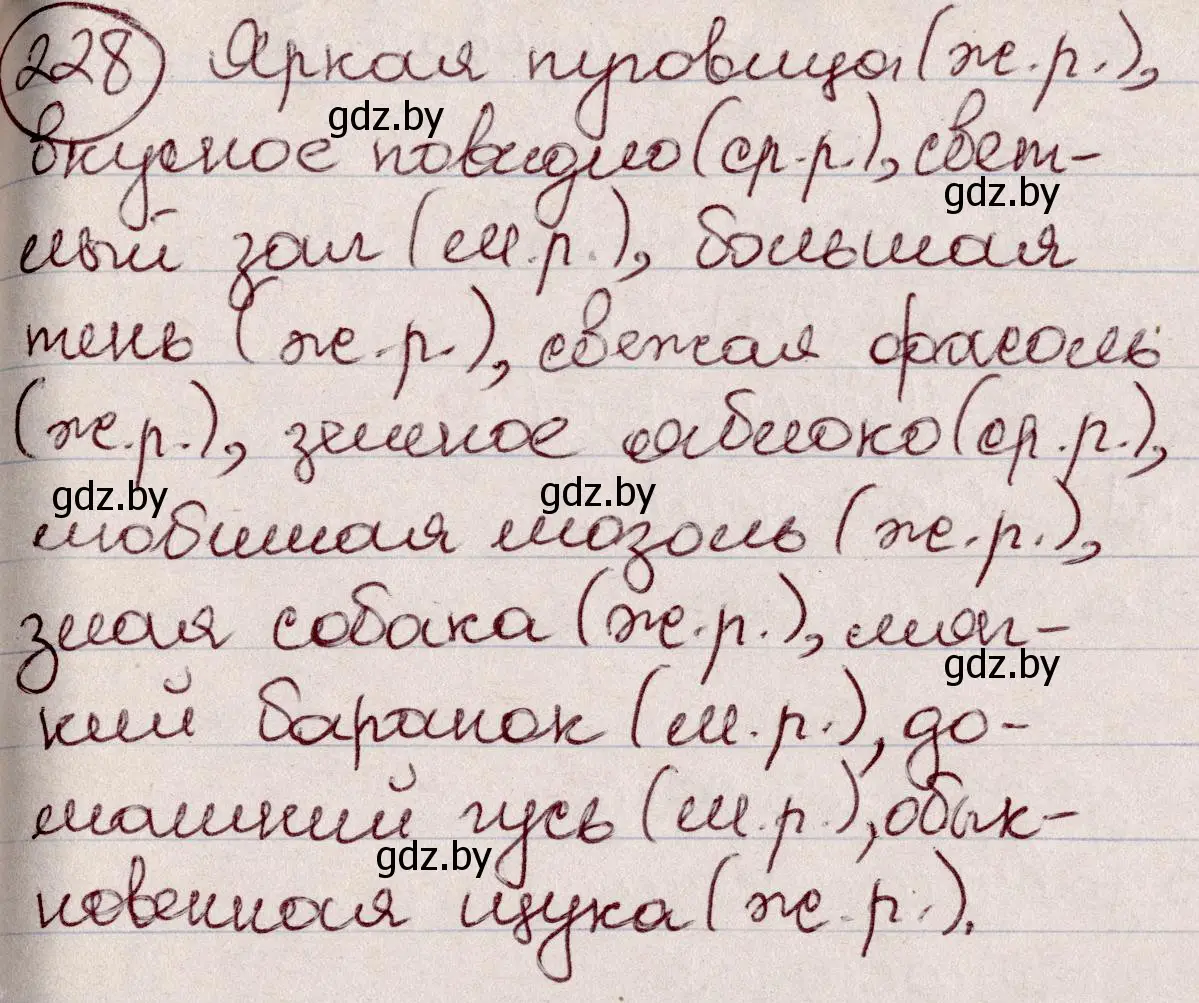 228 Яркая пуговица (ж.р.),
вкусное повидло (ср.р.), свет-
лый зал (м.р.), большая
тень (ж.р.), свежая фасоль
(ж.р.), зимнее яблоко (ср.р.),
любимая мозоль (ж.р.),
злая собака (ж.р.), мяг-
кий баранок (м.р.), до-
машний гусь (м.р.), обык-
новенная щука (ж.р.).
gdz.by
gdz.by
gdz.by
gdz.by
gdz.by
gdz.by